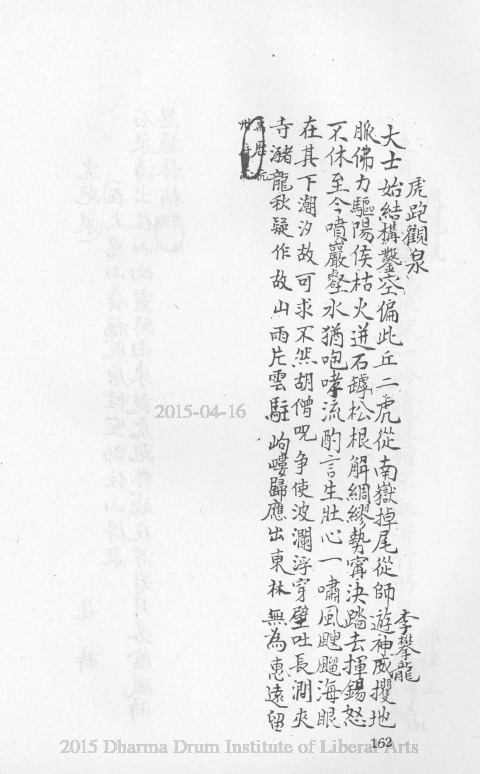 虎跑觀泉
李攀龍
大士始結構鑿空偏此丘二虎從南嶽掉尾從師遊神威攫地
脈佛力驅陽侯枯火迸石罅松根解綢繆勢寧決踏去揮錫怒
不休至今噴巖壑水猶咆哮流酌言生壯心一嘯風颼飀海眼
在其下潮汐故可求不然胡僧呪争使波瀾浮穿壁吐長澗夾
寺瀦龍秋疑作故山雨片雲駐岣嶁歸應出東林無為惠遠留
162
2015-04-16
2015 Dharma Drum Institute of Liberal Arts